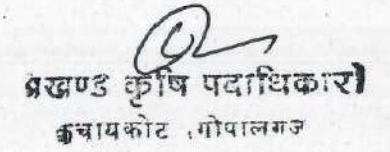 प्रखण्ड कृषि पदाधिकारी
कुचायकोट ,गोपालगज